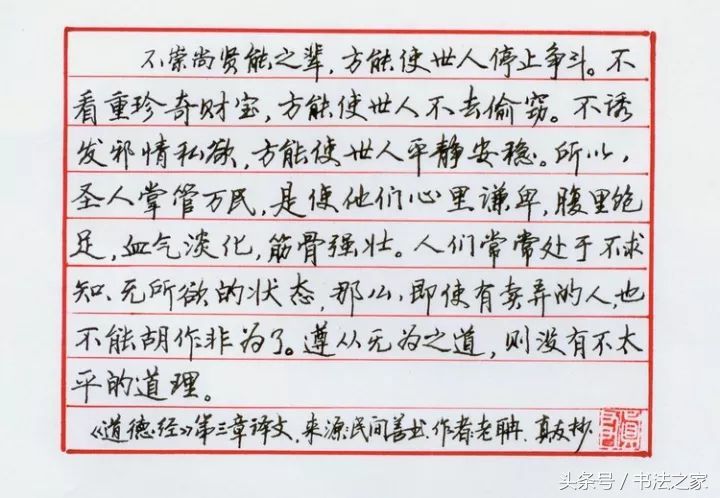 不崇尚贤能之辈，方能使世人停止争斗。不
看重珍奇财宝，方能使世人不去偷窃。不诱
发邪情私欲，方能使世人平静安稳。所以，
圣人掌管万民，是使他们心里谦卑，腹里饱
足，血气淡化，筋骨强壮。人们常常处于不求
知、无所欲的状态，那么，即使有卖弄的人，也
不能胡作非为了。遵从无为之道，则没有不太
平的道理。
《道德经》第三章译文，来源民间善书，作者老聃，真友抄
头条号 / 书法之家